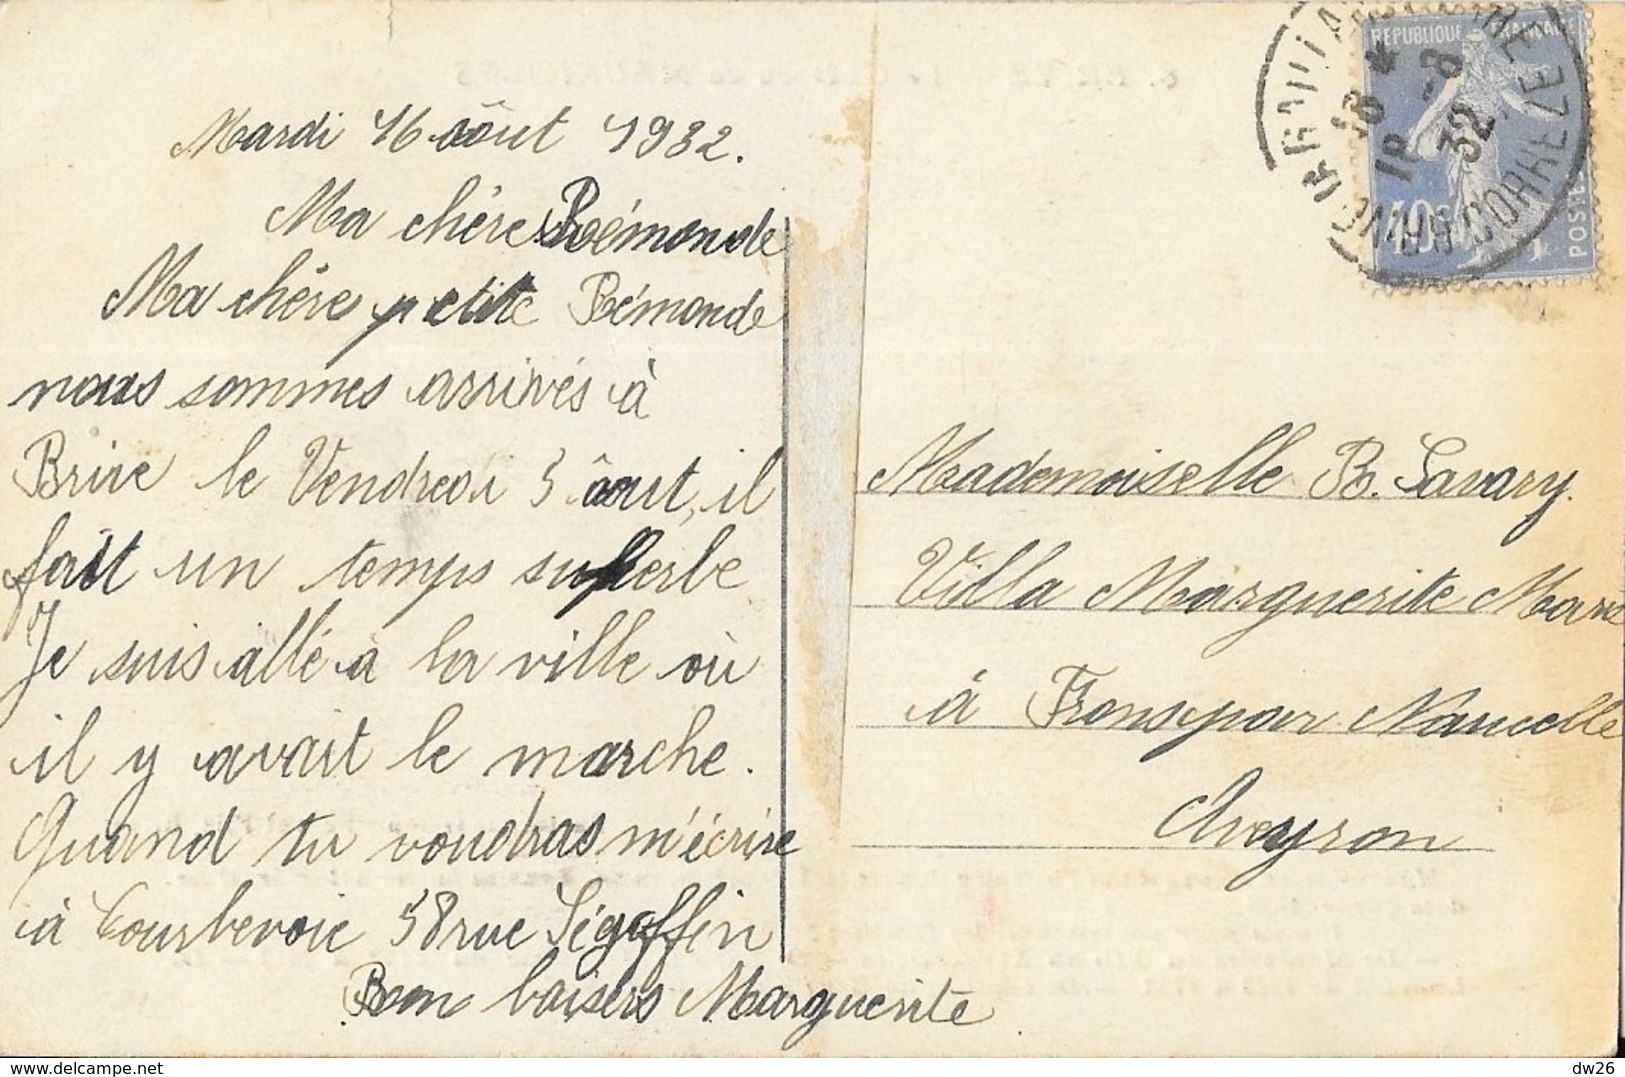 Mardi 16 août 1932.
Ma chère Rémonde
Ma chère petite Rémonde
nous sommes arrivés à
Brive le Vendredi 5 août, il
fait un temps superbe
Je suis allé à la ville où
il y avait le marche.
Quand tu voudras m'écrire
à Courbevoie 58 rue Ségoffin
Bon baisers Marguerite
REPUBLIQUE FRANCAISE
18
18 -8
32
40c
POSTES
CORREZE
Mademoiselle R. Savary.
Villa Marguerite Marie
à Frons par Naucelle
Aveyron
dw26